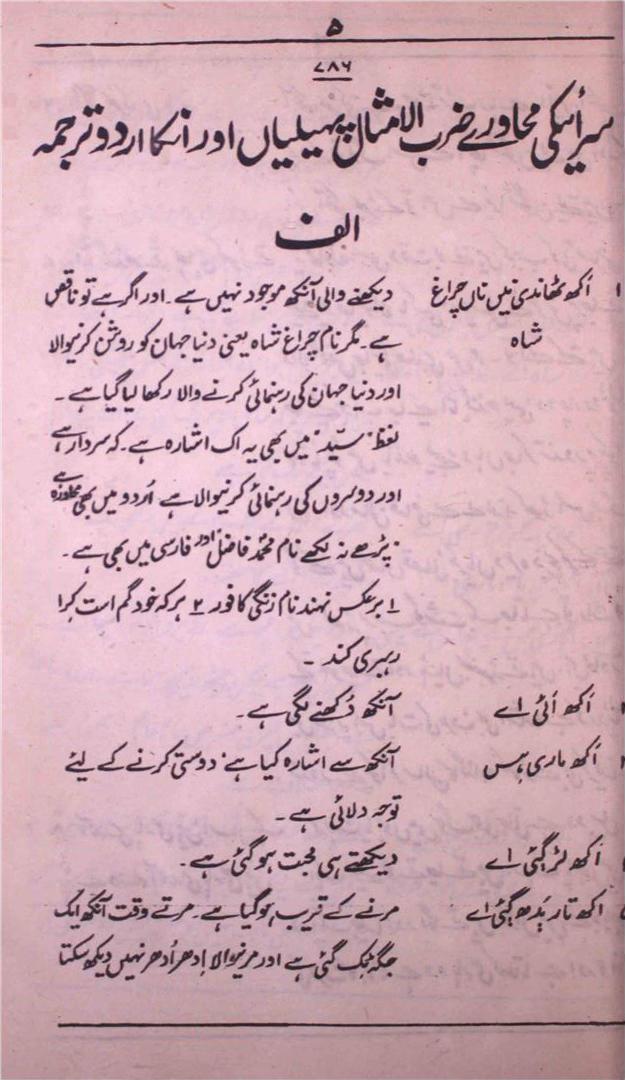 ۵
۷۸۶
سرائیکی محاورے ضرب الامثال پہیلیاں اور انکا اردو ترجمہ
الف
۱ اَکھ ٹھاندی نیں ناں چراغ دیکھنے والی آنکھ موجود نہیں ہے۔ اور اگر ہے تو ناقص
شاہ ہے۔ مگر نام چراغ شاہ یعنی دنیا جہان کو روشن کرنیوالا
اور دنیا جہان کی رہنمائی کرنے والا رکھا لیا گیا ہے۔
لفظ سیّد میں بھی یہ اک اشارہ ہے۔ کہ سردار ہے
اور دوسروں کی رہنمائی کرنیوالا ہے اُردو میں بھی محاورہ ہے
پڑھے نہ لکھے نام محمد فاضل اور فارسی میں بھی ہے۔
۱ برعکس نہند نام زنگی کافور ۲ ہر کہ خود گم است کرا
رہبری کند۔
اَکھ اُٹی اے آنکھ دُکھنے لگی ہے۔
اَکھ ماری ہس آنکھ سے اشارہ کیا ہے دوستی کرنے کے لیئے
توجہ دلائی ہے۔
اَکھ لڑ گئی اے دیکھتے ہی محبت ہو گئی ہے۔
اکھ تار بُدھ گئی اے مرنے کے قریب ہو گیا ہے۔ مرتے وقت آنکھ ایک
جگہ ٹِک گئی ہے اور مرنیوالا اِدھر اُدھر نہیں دیکھ سکتا